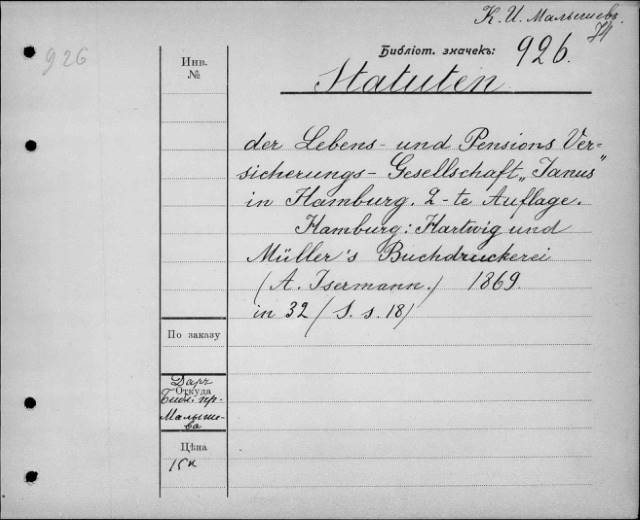 К. И. Малышевъ
926
Инв.
№
Библіот. значекъ: 926.
Statuten
der Lebens- und Pensions Ver-
sicherungs- Gesellschaft „Janus"
in Hamburg. 2-te Auflage.
Hamburg: Hartwig und
Müller's Buchdruckerei
(A. Isermann.) 1869.
in 32 (S. s. 18)
По заказу
Даръ
Откуда
Библ. пр.
Малыше-
ва
Цѣна
15к